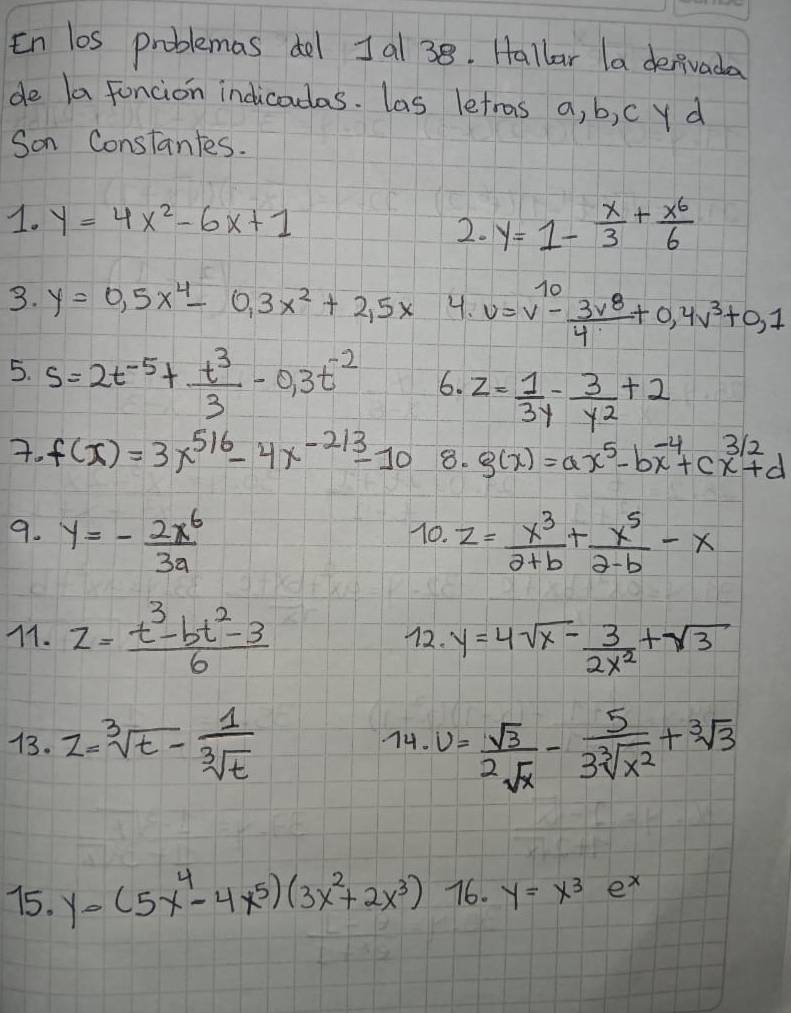 En los problemas del 1 al 38. Hallar la derivada
de la función indicadas. las letras a, b, c y d
Son Constantes.
1. y = 4x² - 6x + 1 2. y = 1 - x/3 + x⁶/6
3. y = 0,5x⁴ - 0,3x² + 2,5x 4. υ = v¹⁰ - 3v⁸/4 + 0,4v³ + 0,1
5. s = 2t⁻⁵ + t³/3 - 0,3t⁻² 6. z = 1/3y - 3/y² + 2
7. f(x) = 3x^5/6 - 4x^-2/3 - 10 8. g(x) = ax⁵ - bx⁻⁴ + cx^3/2 + d
9. y = - 2x⁶/3a 10. z = x³/a+b + x⁵/a-b - x
11. z = t³ - bt² - 3/6 12. y = 4√x - 3/2x² + √3
13. z = ∛t - 1/∛t 14. υ = √3/2√x - 5/3∛x² + ∛3
15. y = (5x⁴ - 4x⁵)(3x² + 2x³) 16. y = x³ eˣ